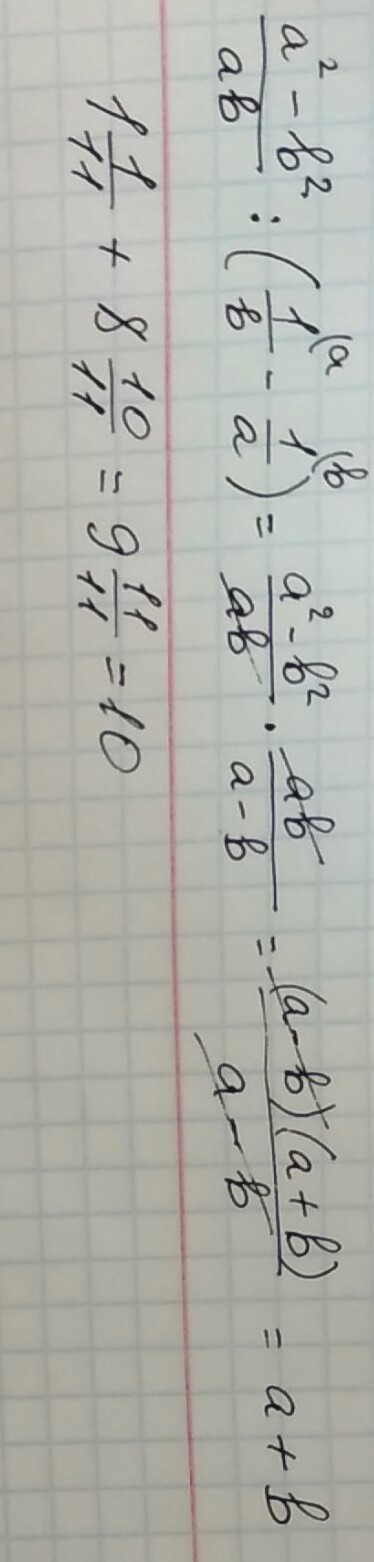 a² - b²/ab : (1/b (a - 1/a (b) = a² - b²/ab · ab/a - b = (a - b)(a + b)/a - b = a + b
1 1/11 + 8 10/11 = 9 11/11 = 10